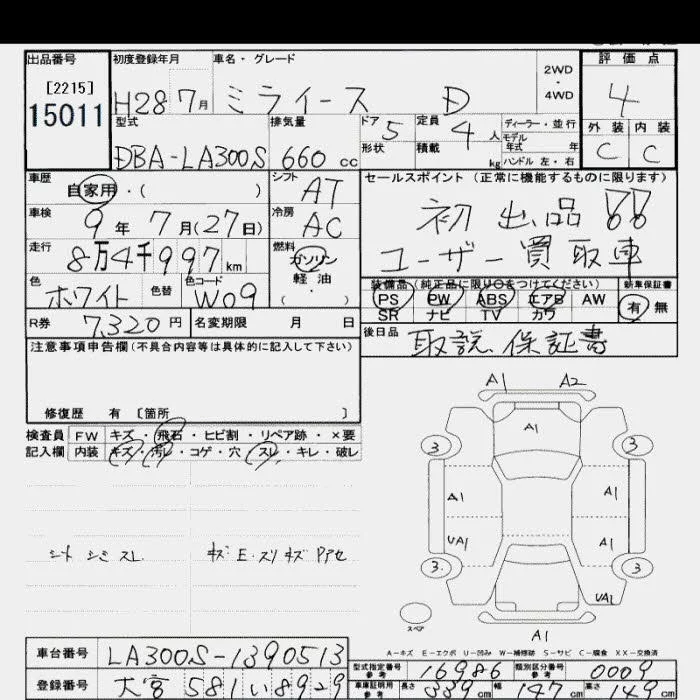 出品番号 初度登録年月 車名・グレード 評価点
[2215]
15011
H28 7月 ミライース D 2WD・4WD 4
型式 排気量 ドア 5 定員 4人 ディーラー・並行 外装 内装
DBA-LA300S 660 cc 形状 積載 kg モデル年式 年 C C
ハンドル 左・右
車歴 シフト セールスポイント (正常に機能するものに限ります)
自家用・( ) AT 初出品!!
車検 9年 7月(27日) 冷房 AC ユーザー買取車
走行 8万4千997km 燃料 ガソリン・軽油・( )
色 ホワイト 色替 色コード W09 装備品(純正品に限り○をつけてください) 新車保証書
PS PW ABS エアB AW 有 無
SR ナビ TV カワ
R券 7,320円 名変期限 月 日 後日品 取説、保証書
注意事項申告欄(不具合内容等は具体的に記入して下さい)
修復歴 有 [箇所 ]
検査員 FW キズ・飛石・ヒビ割・リペア跡・×要
記入欄 内装 キズ・汚レ・コゲ・穴・スレ・キレ・破レ
A1 A2
A1
3 3
A1 A1
UA1 A1
3 3
UA1
スペア
A1
シート シミ スレ
A-キズ E-エクボ U-凹み W-補修跡 S-サビ C-腐食 XX-交換済
車台番号 LA300S-1390513
登録番号 大宮 581 い 8929
型式指定番号 参考 16986 類別区分番号 参考 0009
車庫証明用 参考 長さ 339cm 幅 147cm 高さ